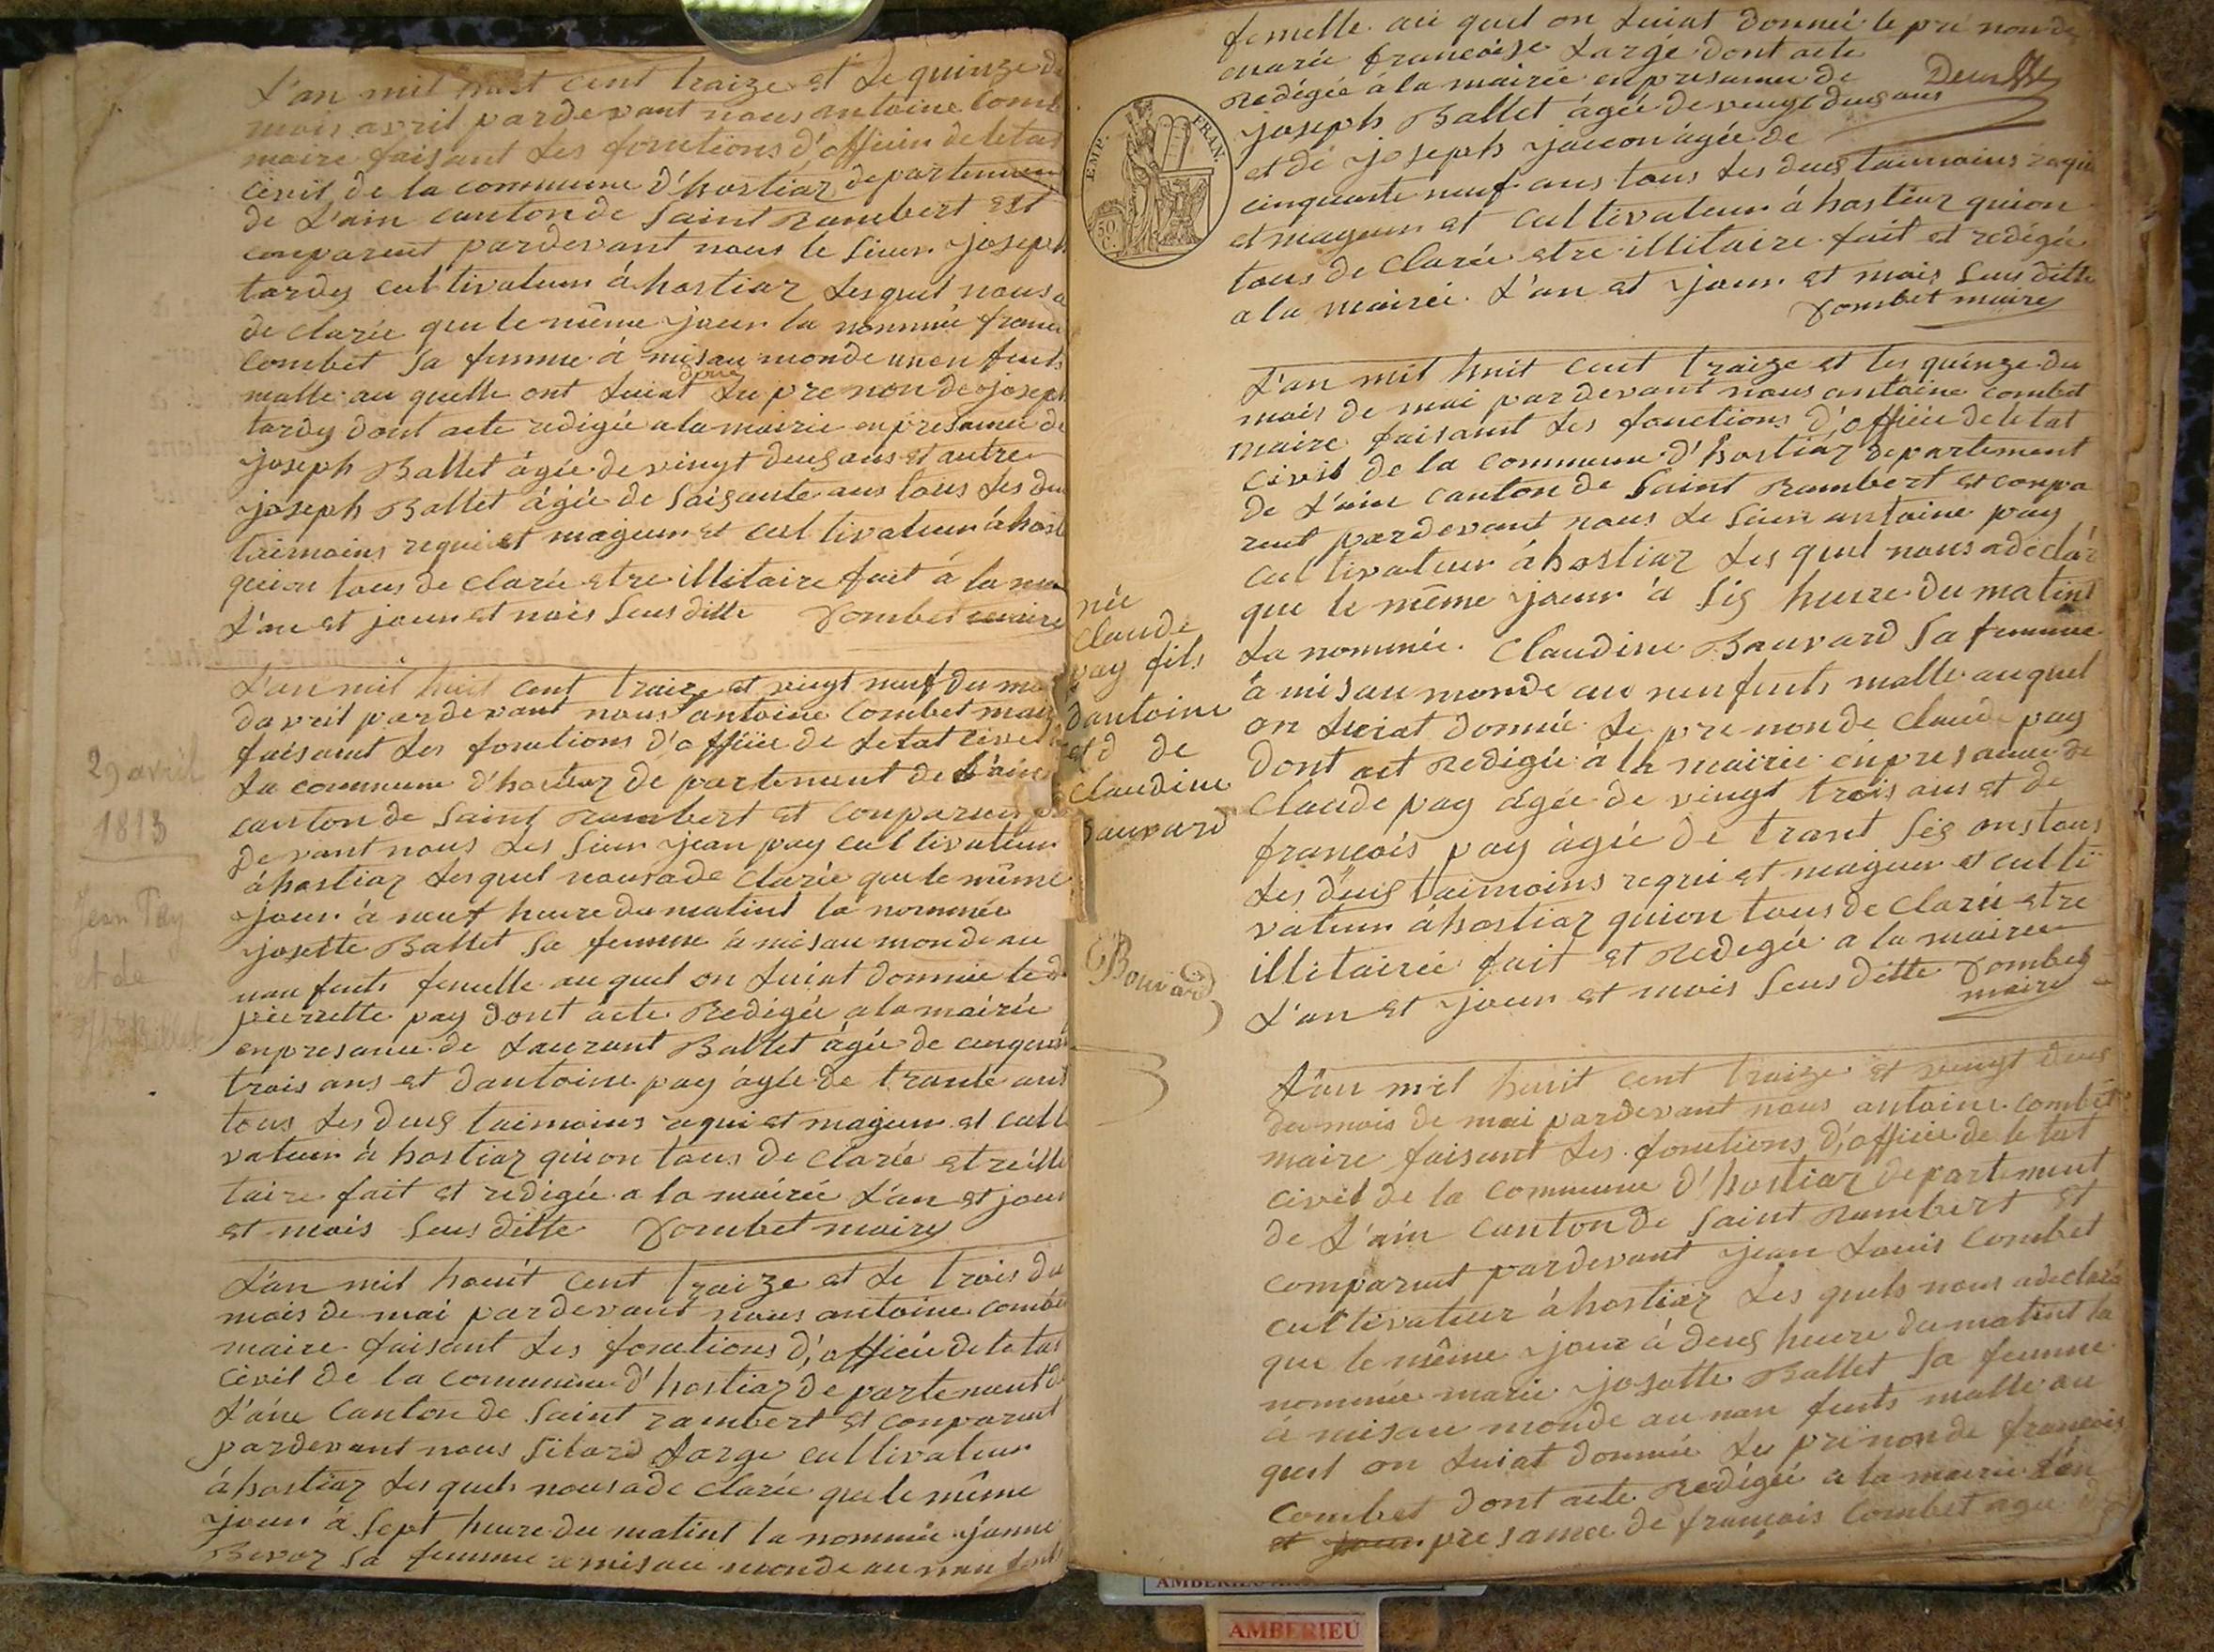 L'an mil huit cent traize et le quinze du
mois avril pardevant nous antoine Comb
maire faisant les fonctions d'officiu de letat
civil de la commune d'hostiaz departement
de L'ain canton de Saint Rambert est
conparent pardevant nous le Sieur joseph
tardy cultivateur á hostiaz Lesquel nous a
de clarée que le même jour la nommée franc
Combet sa femme à misau monde unen fents
malle au quelle ont Luiat donné Le pre non de joseph
tardy dont acte redigée a la mairie en presance de
joseph Ballet âgée de vingt deus ans et autre
joseph Ballet âgée de Saisante ans tous Les deu
taimoins requi et mageur et cultivateur á host
qui on tous de clarée etre illitaire fait á la mai
L'an et jour et mois Sus ditte Combet maire
29 avril
1813
Jean Pay
et de
Jte Ballet
L'an mil huit cent traize et vingt neuf du mo
davril pardevant nous antoine Combet mair
faisant Les fonctions d'offiiie de Letat civel
La commune d'hostiaz de partement de L'ain
canton de Saint Rambert et conparent
devant nous Les Sieur jean pay cultivateur
á hostiaz Lesquel nousade clarée que le même
jour á neuf heure du matint la nommée
josette Ballet sa femme à misau monde au
nan fents femelle auquel on Luiat donnée le
pierrette pay dont acte Redigée a la mairie
enpresance de Laurant Ballet âgée de cinquant
trois ans et dantoine pay âgée de trante ans
tous Les deus taimoins requi et mageur et culti
vateur á hostiaz qui on tous de clarée etre illi
taire fait et redigée a la mairie L'an et jour
et mois Sus ditte Combet maire
L'an mil houit cent traize et Le trois du
mois de mai pardevant nous antoine combe
maire faisant Les fonctions d'officiu de letat
civil de la commune d'hostiaz departement d
L'ain Canton de Saint rambert et conparent
pardevant nous Sibard Large cultivateur
á hostiaz Les quels nousade clarée que le même
jour á Sept heure du matint la nommée janne
Bevoz sa femme a misau monde au nan fents
femelle au quel on Luiat donnée le pre non de
marie francoise Large dont acte
redigée á la mairie en presance de
joseph Ballet âgée de vingt deus ans
et de joseph jaccon âgée de
cinquante neuf ans tous Les deus taimoins requi
et mageur et cultivateur á hostiaz qui on
tous de clarée etre illitaire fait et redigée
a la mairie L'an et jour et mois Sus ditte
Combet maire
EMP. FRAN.
50 C.
L'an mil huit cent traize et les quinze du
mois de mai pardevant nous antoine combet
maire faisant Les fonctions d'officie de letat
civil de la commune d'hostiaz departement
de L'ain canton de Saint Rambert et conpa
rent pardevant nous Le Sieur antoine pay
cultivateur á hostiaz Les quel nous adeclar
que le même jour á Sis heure du matint
La nommée Claudine Bauvard Sa femme
à misau monde au nenfents malle auquel
on Luiat donnée Le pre non de Claude pay
dont act Redigée á la mairie en presance de
Claude pay âgée de vingt trois ans et de
francois pay âgée de trant Sis ans tous
Les deus taimoins requi et mageur et culti
vateur á hostiaz qui on tous de clarée etre
illitairée fait et Redegée a la mairie
L'an et jour et mois Sus ditte Combet
maire
née
Claude
pay fils
dantoine
et de
Claudine
Bauvard
Bouvard
L'an mil houit cent traize et vingt deus
du mois de mai pardevant nous antoine combet
maire faisant Les fonctions d'officiie de le tat
civil de la commune d'hostiaz departement
de L'ain Canton de Saint Rambert et
comparent pardevant jean Louis Combet
cultivateur á hostiaz Les quels nous adeclaré
que le même jour á deus heure du matint la
nommée marie josatte Ballet Sa femme
á misau monde au nan fents malle au
quel on Luiat donnée Le prénon de francois
Combet dont acte Redégée a la mairie L'an
et jour presance de francois Combet agée de
AMBERIEU